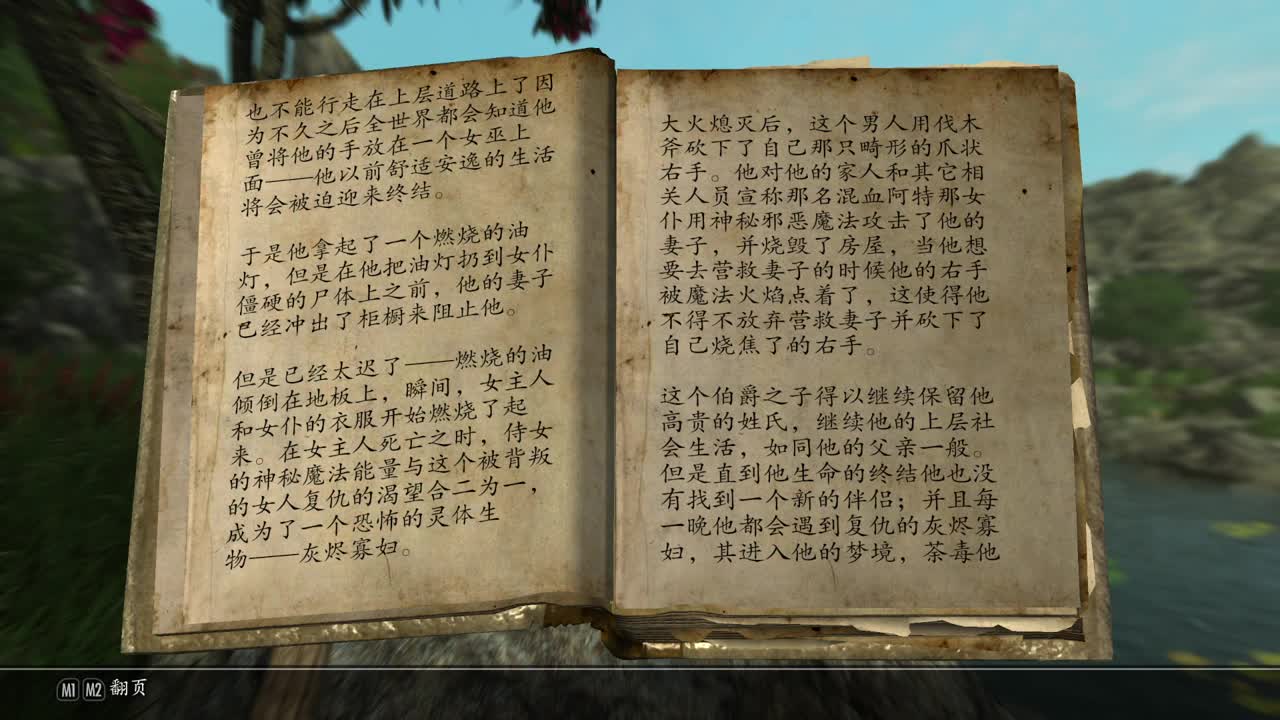 也不能行走在上层道路上了因
为不久之后全世界都会知道他
曾将他的手放在一个女巫上
面——他以前舒适安逸的生活
将会被迫迎来终结。
于是他拿起了一个燃烧的油
灯，但是在他把油灯扔到女仆
僵硬的尸体上之前，他的妻子
已经冲出了柜橱来阻止他。
但是已经太迟了——燃烧的油
倾倒在地板上，瞬间，女主人
和女仆的衣服开始燃烧了起
来。在女主人死亡之时，侍女
的神秘魔法能量与这个被背叛
的女人复仇的渴望合二为一，
成为了一个恐怖的灵体生
物——灰烬寡妇。
大火熄灭后，这个男人用伐木
斧砍下了自己那只畸形的爪状
右手。他对他的家人和其它相
关人员宣称那名混血阿特那女
仆用神秘邪恶魔法攻击了他的
妻子，并烧毁了房屋，当他想
要去营救妻子的时候他的右手
被魔法火焰点着了，这使得他
不得不放弃营救妻子并砍下了
自己烧焦了的右手。
这个伯爵之子得以继续保留他
高贵的姓氏，继续他的上层社
会生活，如同他的父亲一般。
但是直到他生命的终结他也没
有找到一个新的伴侣；并且每
一晚他都会遇到复仇的灰烬寡
妇，其进入他的梦境，荼毒他
M1 M2 翻页